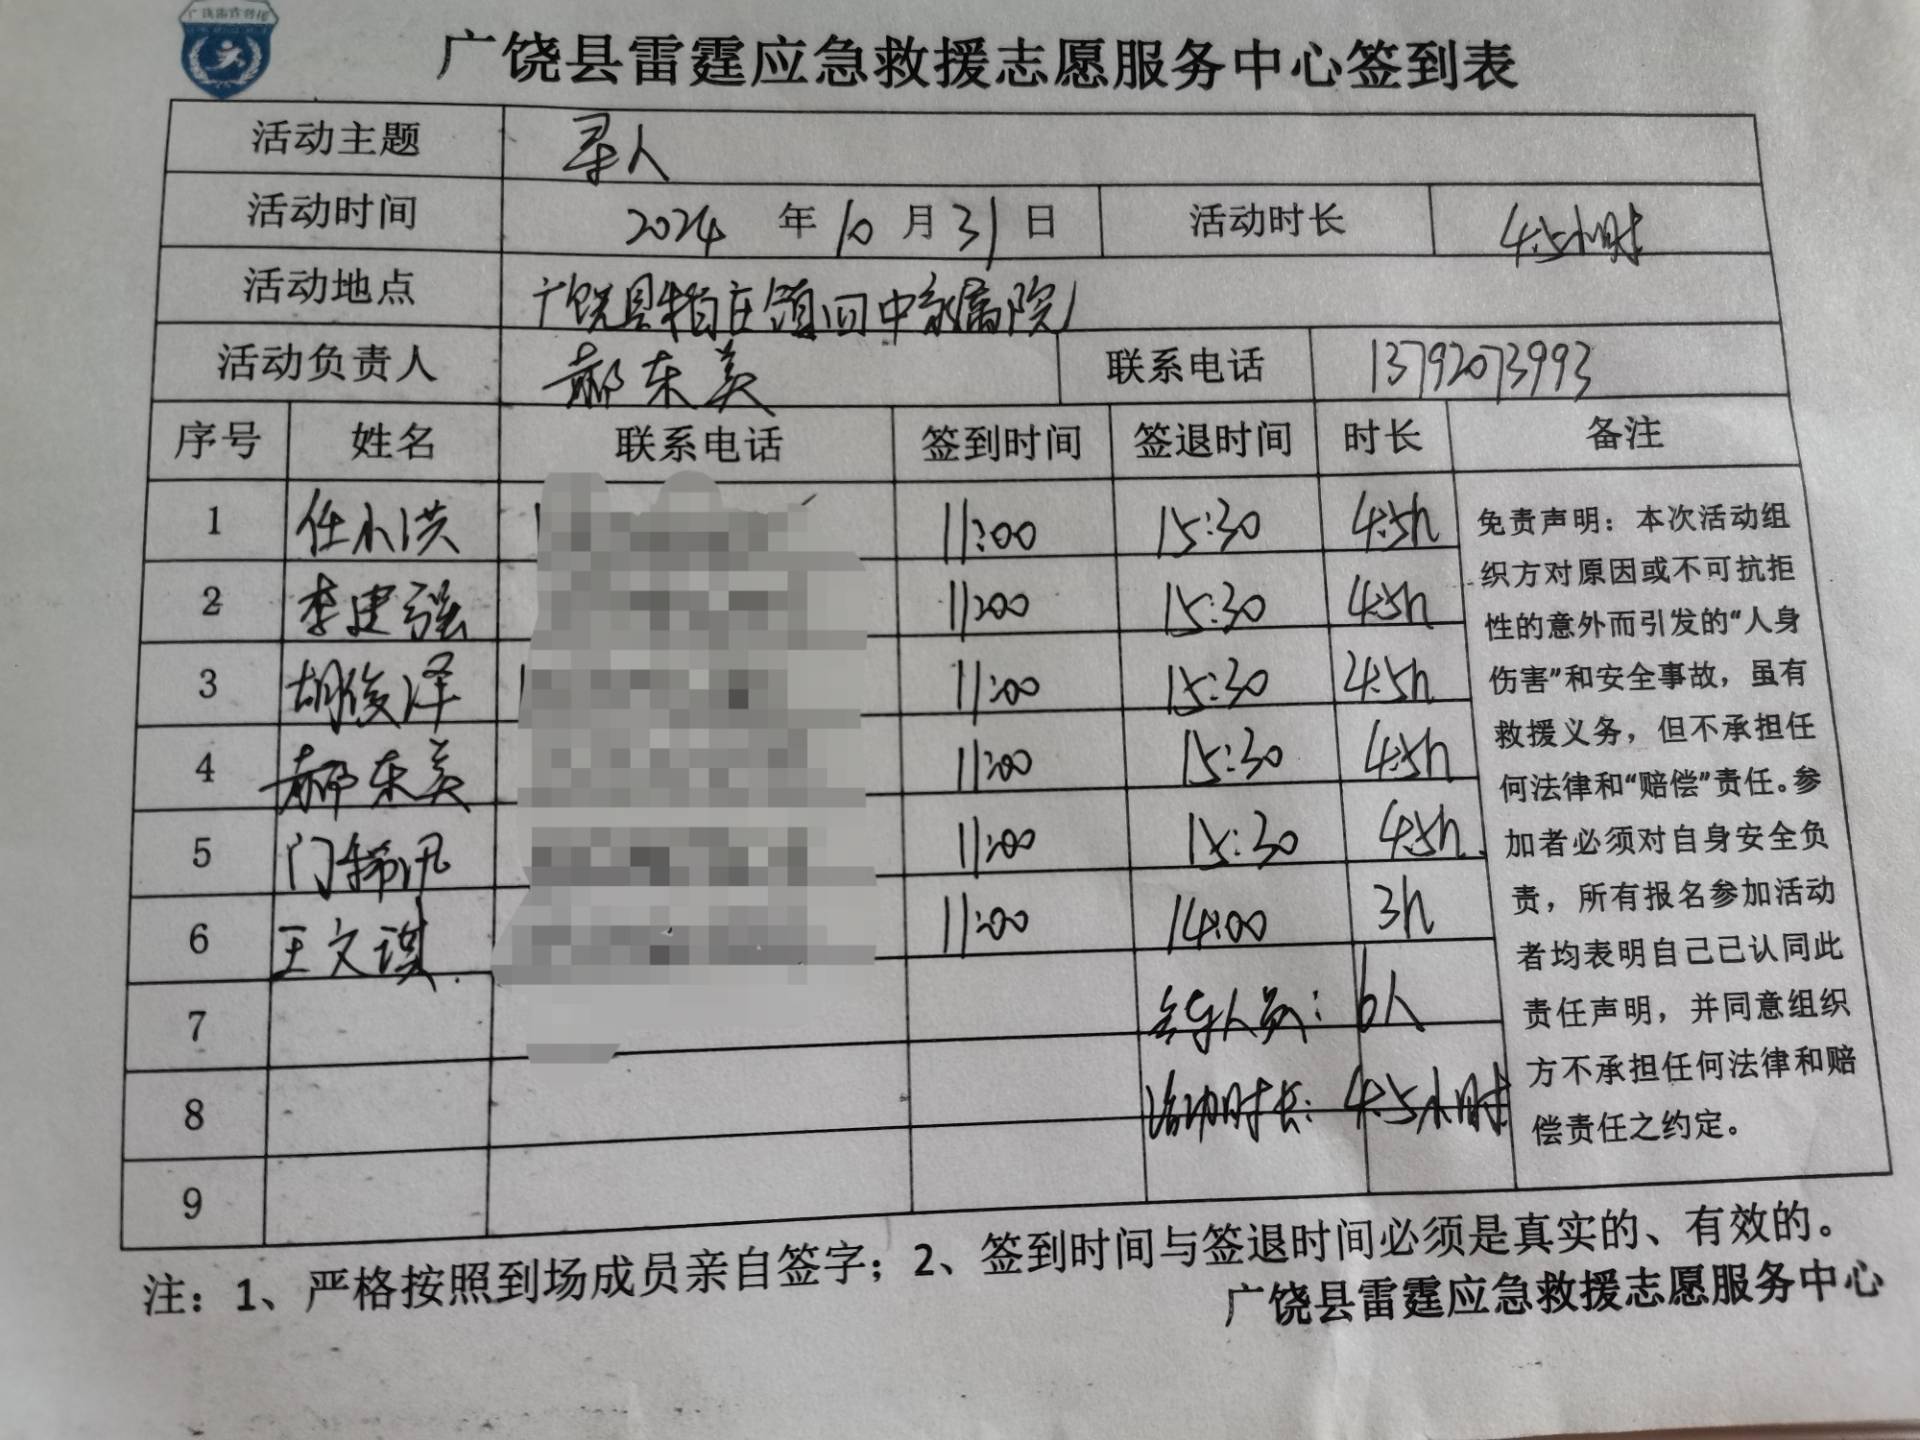 广饶县雷霆应急救援志愿服务中心签到表
活动主题 寻人
活动时间 2024 年 10 月 31 日 活动时长 4.5小时
活动地点 广饶县
活动负责人 郝东美 联系电话 13792073993
序号 姓名 联系电话 签到时间 签退时间 时长 备注
1 任小洪 11:00 15:30 4.5h
2 李建强 11:00 15:30 4.5h
3 胡俊泽 11:00 15:30 4.5h
4 郝东美 11:00 15:30 4.5h
5 11:00 15:30 4.5h
6 王文谋 11:00 14:00 3h
7 参与人员: 6人
8 活动时长: 4.5小时
9
免责声明：本次活动组
织方对原因或不可抗拒
性的意外而引发的“人身
伤害”和安全事故，虽有
救援义务，但不承担任
何法律和“赔偿”责任。参
加者必须对自身安全负
责，所有报名参加活动
者均表明自己已认同此
责任声明，并同意组织
方不承担任何法律和赔
偿责任之约定。
注：1、严格按照到场成员亲自签字；2、签到时间与签退时间必须是真实的、有效的。
广饶县雷霆应急救援志愿服务中心